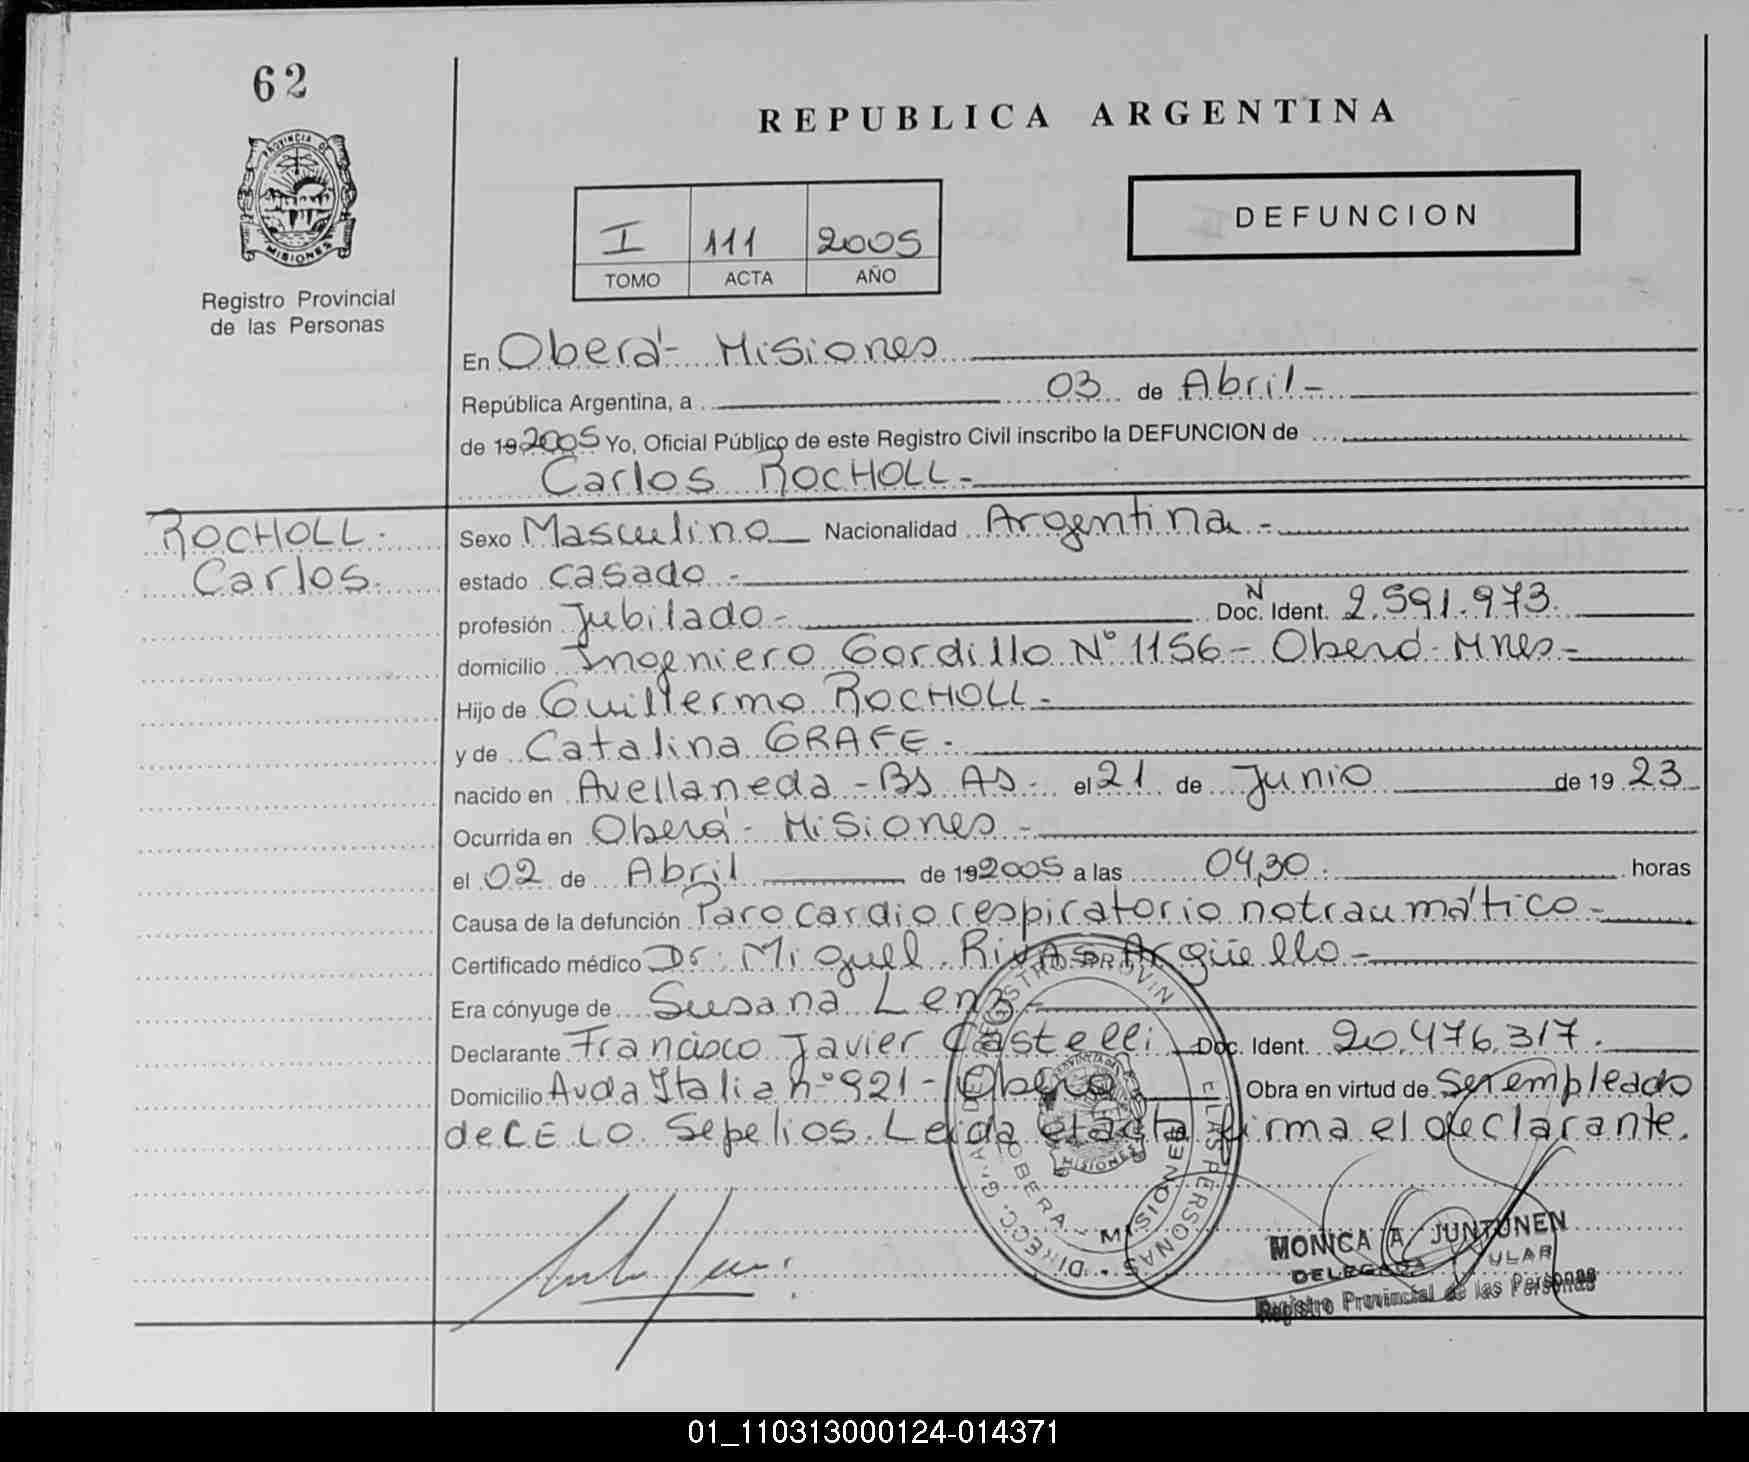 62
REPUBLICA ARGENTINA
PROVINCIA DE
MISIONES
Registro Provincial
de las Personas
I 111 2005
TOMO ACTA AÑO
DEFUNCION
En Oberá - Misiones
República Argentina, a 03 de Abril -
de 19 2005 Yo, Oficial Público de este Registro Civil inscribo la DEFUNCION de
Carlos ROCHOLL -
ROCHOLL -
Carlos.
Sexo Masculino Nacionalidad Argentina -
estado casado -
profesión Jubilado - Doc. N Ident. 2.591.973.
domicilio Ingeniero Gordillo N° 1156 - Oberá - Mnes -
Hijo de Guillermo ROCHOLL -
y de Catalina GRAFE -
nacido en Avellaneda - Bs As - el 21 de Junio de 19 23
Ocurrida en Oberá - Misiones -
el 02 de Abril de 19 2005 a las 04,30. horas
Causa de la defunción Paro cardio respiratorio no traumático -
Certificado médico Dr. Miguel Rivas Argüello -
Era cónyuge de Susana Lenz -
Declarante Francisco Javier Castelli Doc. Ident. 20.476.317.
Domicilio Avda Italia n° 921 - Oberá Obra en virtud de ser empleado
de CELO Sepelios. Leida el acta firma el declarante.
DIRECC. GRAL. DEL REGISTRO PROVIN DE LAS PERSONAS
OBERA - MISIONES
MISIONES
MONICA A. JUNTUNEN
DELEGADA TITULAR
Registro Provincial de las Personas
01_110313000124-014371